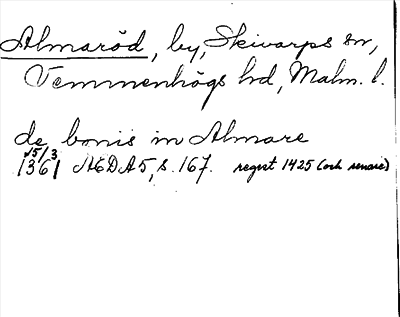 Almaröd, by, Skivarps sn,
Vemmenhögs hd, Malm. l.
de bonis in Almare
15/3
1361 ÆDA 5, s. 167. regest 1425 (och senare)